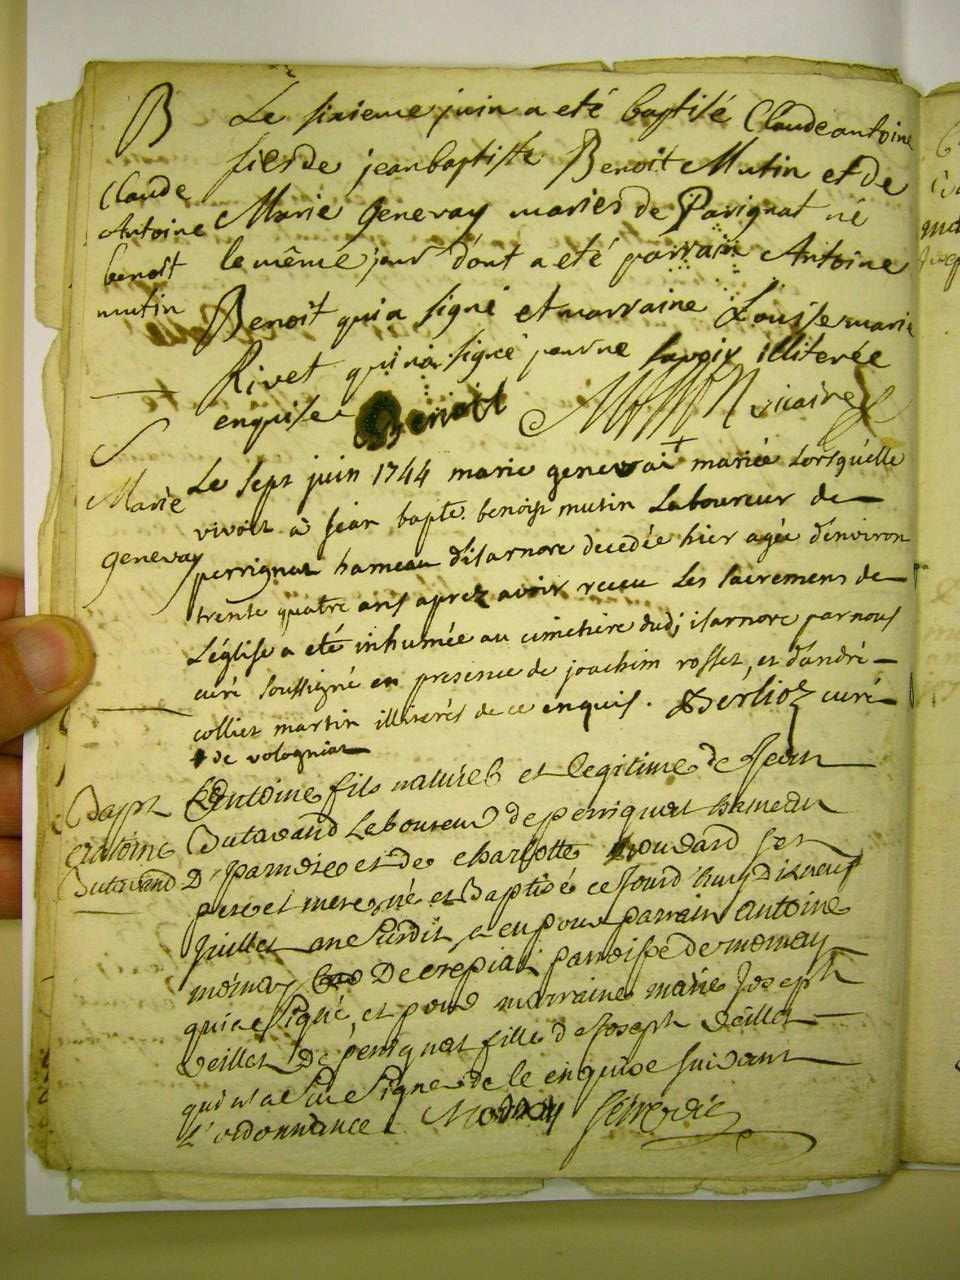 B
Claude
Antoine
benoit
mutin
Le sixieme juin a eté baptisé Claude antoine
fils de jean baptiste Benoit Mutin et de
Marie Genevay mariés de Parignat né
le même jour dont a eté parrain Antoine
Benoit qui a signé et marraine Louise marie
Rivet qui n'a signé pour ne savoir illiterée
enquise Benoit vicaire
S
Marie
genevay
Le sept juin 1744 marie genevai + mariée Lorsqu'elle
vivoit à jean bapte. benoist mutin Laboureur de
perrignat hameau d'isarnore decedée hier agée d'environ
trente quatre ans aprez avoir receu Les sacremens de
L'église a eté inhumée au cimetiere dudj isarnore par nous
curé soussigné en presence de joachim rosset, et d'andré
collier martin illiterés de ce enquis. Berlioz curé
+ de volognat
Bapt
antoine
Dutavand
Antoine fils naturel et legitime de Jean
Dutavand Laboureur de perrignat hameau
D' et de charlotte ses
pere et mere né et Baptisé ce Jourd'huy Dixneuf
Juillet an Susdit, a eu pour parrain antoine
mornay De crepiat paroisse de mornay
qui a signé, et pour marraine marie Joseph
veillet De perignat fille de Joseph veillet
qui n'a Su Signer de le enquise suivant
L'ordonnance. Mornay